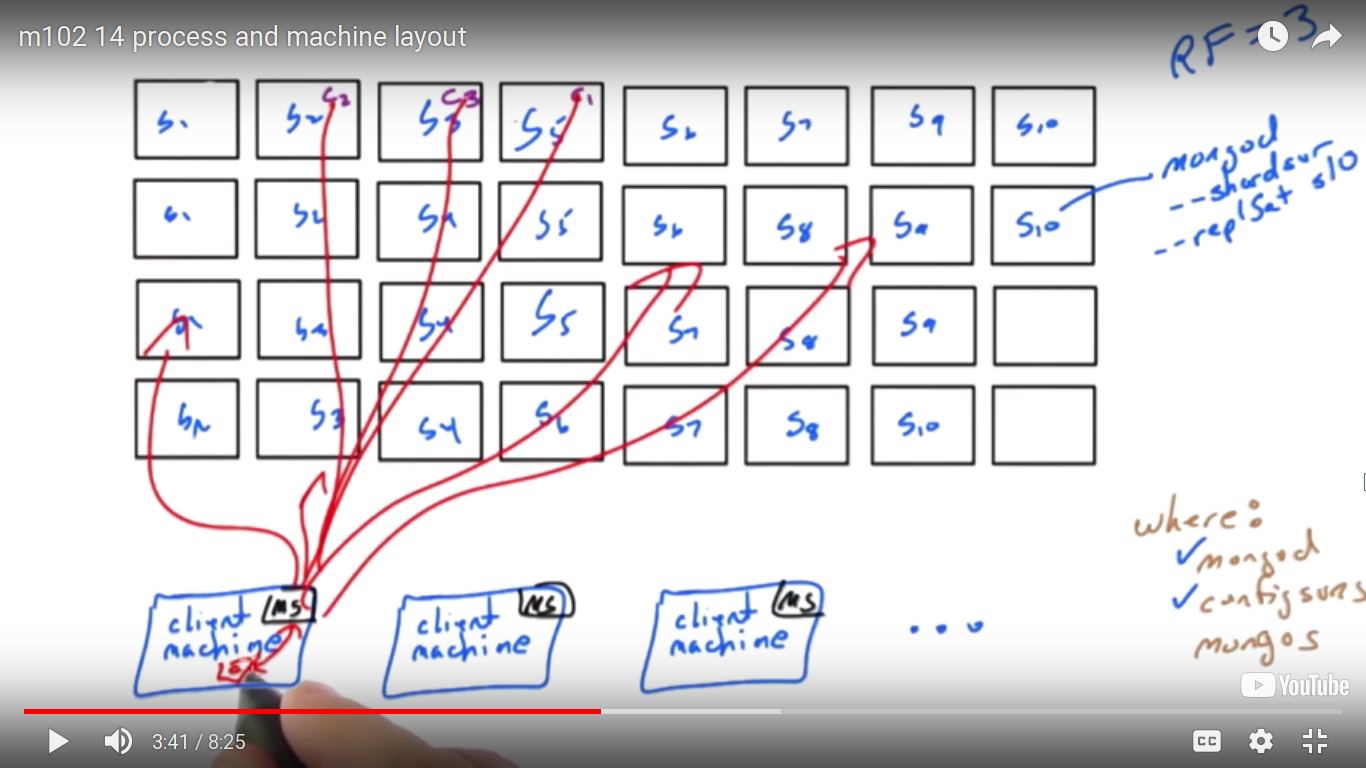 m102 14 process and machine layout
RF=3
C2 C3 C1
S1 S2 S3 S5 S6 S7 S9 S10
S1 S2 S4 S5 S6 S8 S9 S10
S1 S3 S4 S5 S7 S8 S9
S2 S3 S4 S6 S7 S8 S10
mongod
--shardsvr
--replSet s10
where:
✓mongod
✓config svrs
mongos
client MS
machine
client MS
machine
client MS
machine
...
YouTube
3:41 / 8:25
CC